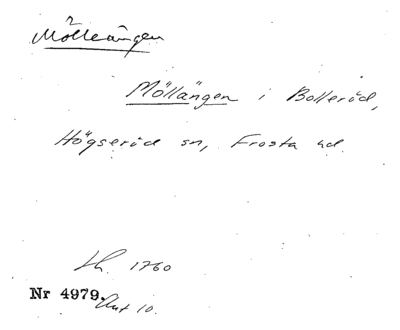 Mölleängen
Möllängen i Bolleröd,
Högseröd sn, Frosta hd.
Lh. 1760
Nr 4979.
Akt 10.